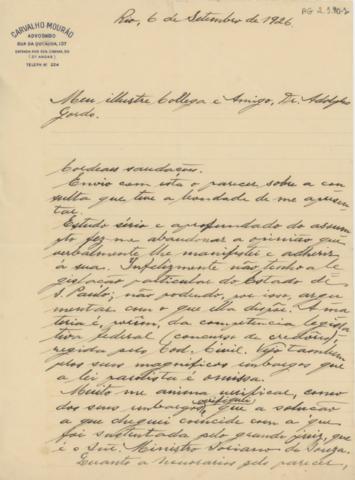 CARVALHO-MOURÃO
ADVOGADO
RUA DA QUITANDA, 137
(2º ANDAR)
TELEPH Nº 224
AG 2.3.90-2
Rio, 6 de Setembro de 1926
Meu illustre Collega e Amigo, Dr. Adolpho
Gordo.
Cordeaes saudações.
Envio com esta o parecer sobre a con-
sulta que teve a bondade de me apresen-
tar.
Estudo sério e aprofundado do assum-
pto fez me abandonar a opinião que
verbalmente lhe manifestei e adherir
á sua. Infelizmente não tenho a le-
gislação particular do Estado de
S. Paulo; não podendo, por isso, argu-
mentar com o que ella dispõe. A ma-
teria é, porém, da competencia legisla-
tiva federal (concurso de credores),
regida pelo Cod. Civil. Vejo tambem
pelos seus magnificos embargos que
a lei paulista é omissa.
Muito me anima verificar, como
dos seus embargos verifiquei, que a solução
a que cheguei coincide com a que
foi sustentada pelo grande juiz, que
é o Snr. Ministro Soriano de Souza.
Quanto a honorarios pelo parecer,